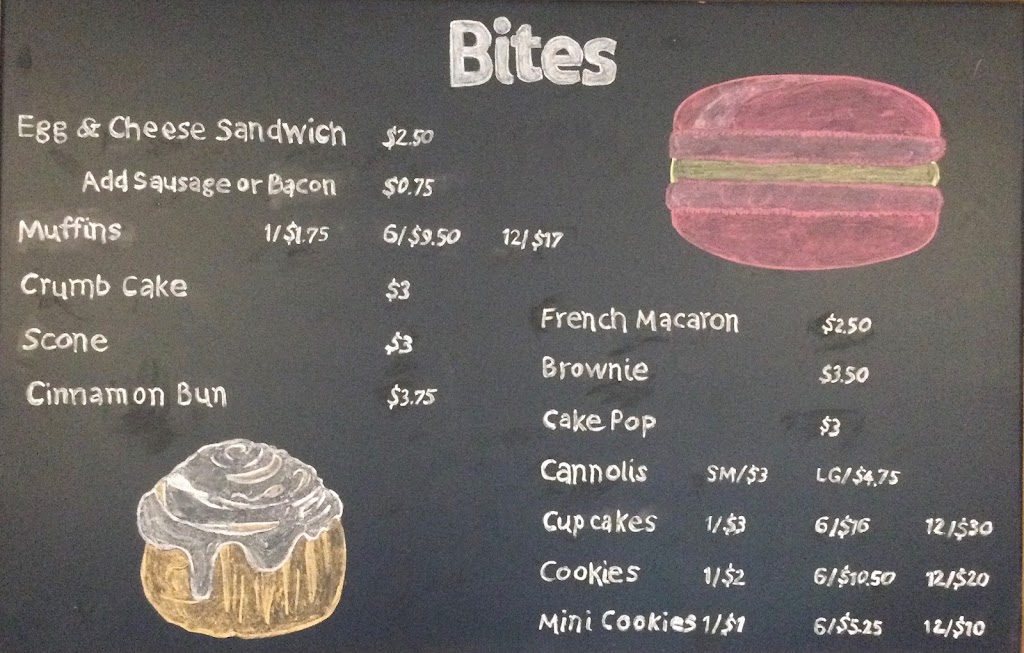 Bites
Egg & Cheese Sandwich $2.50
Add Sausage or Bacon $0.75
Muffins 1/$1.75 6/$9.50 12/$17
Crumb Cake $3
Scone $3
Cinnamon Bun $3.75
French Macaron $2.50
Brownie $3.50
Cake Pop $3
Cannolis SM/$3 LG/$4.75
Cupcakes 1/$3 6/$16 12/$30
Cookies 1/$2 6/$10.50 12/$20
Mini Cookies 1/$1 6/$5.25 12/$10